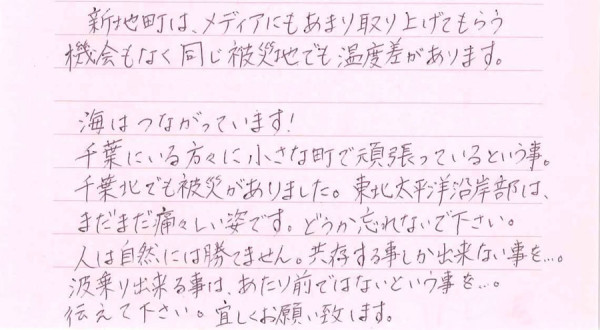 新地町は、メディアにもあまり取り上げてもらう
機会もなく同じ被災地でも温度差があります。
海はつながっています!
千葉にいる方々に小さな町で頑張っているという事。
千葉北でも被災がありました。東北太平洋沿岸部は、
まだまだ痛々しい姿です。どうか忘れないで下さい。
人は自然には勝てません。共存する事しか出来ない事を…。
波乗り出来る事は、あたり前ではないという事を…。
伝えて下さい。宜しくお願い致します。